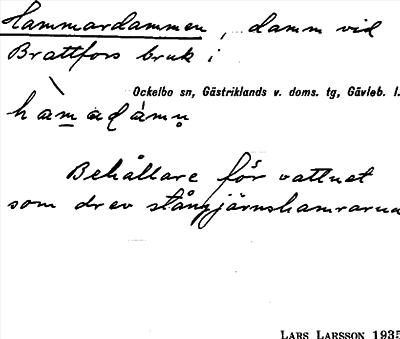 Hammardammen, damm vid
Brattfors bruk i
Ockelbo sn, Gästriklands v. doms. tg, Gävleb. l.
hàmadámṇ
Behållare för vattnet
som drev stångjärnshamrarna
LARS LARSSON 1935